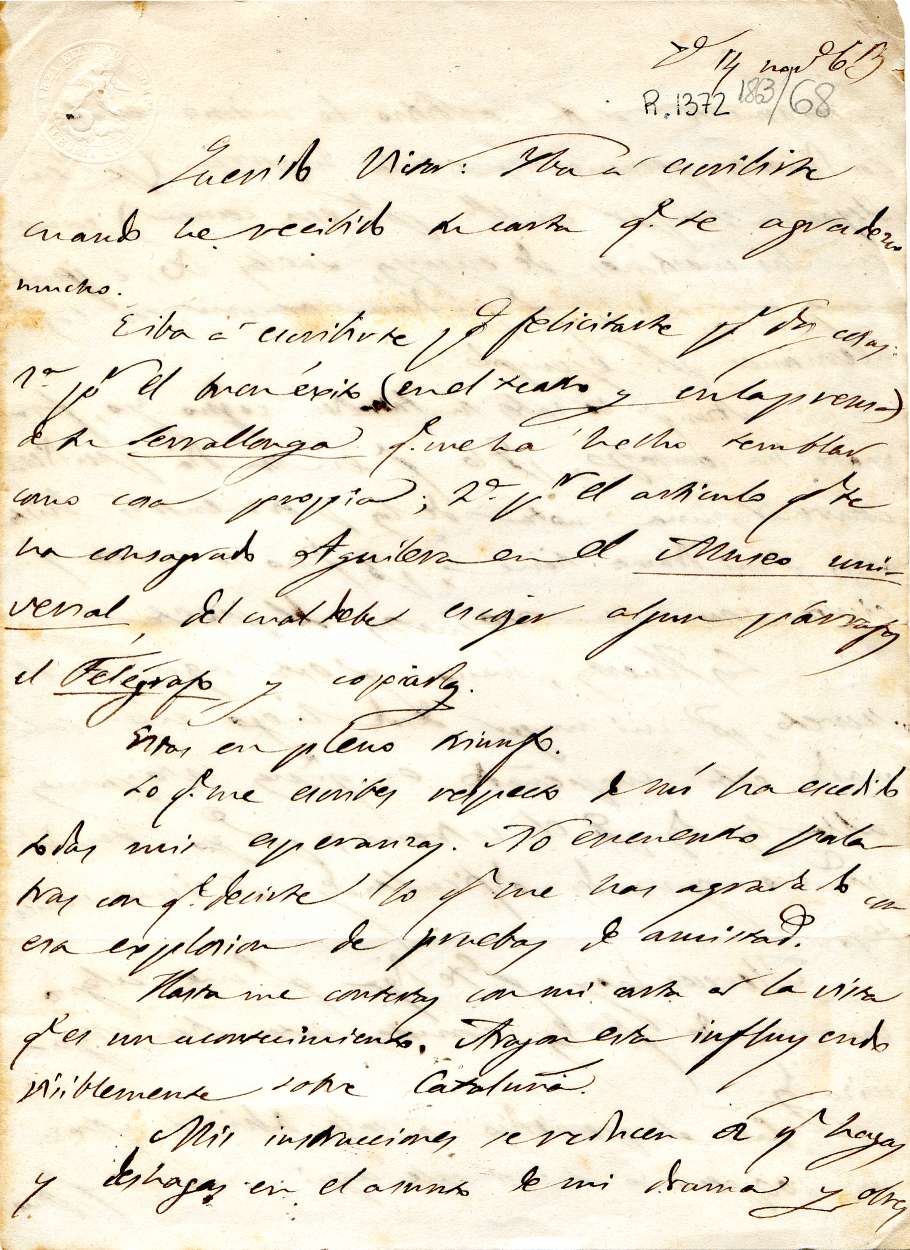 14 nov.e 63
R. 1372 1863/68
Querido Victor: Iba á escribirte
cuando he recibido tu carta q.e te agradezco
mucho.
E iba á escribirte p.a felicitarte p.r dos cosas:
1.a p.r el buen éxito (en el teatro y en la prensa)
de tu Serrallonga q.e me ha hecho temblar
como cosa propia; 2.a p.r el articulo q.e te
ha consagrado Aguilera en el Museo uni-
versal, del cual debe escojer algun párrafo
el Telégrafo y copiarlo.
Estas en pleno triunfo.
Lo q.e me escribes respecto de mis ha escedido
todas mis esperanzas. No encuentro pala
bras con q.e decirte lo q.e me has agradado con
esa explosion de pruebas de amistad.
Hasta me contestas con mi carta á la vista
q.e es un acontecimiento. Aragon esta influyendo
visiblemente sobre Cataluña.
Mis instrucciones se reducen á q.e hagas
y deshagas en el asunto de mi drama y obres